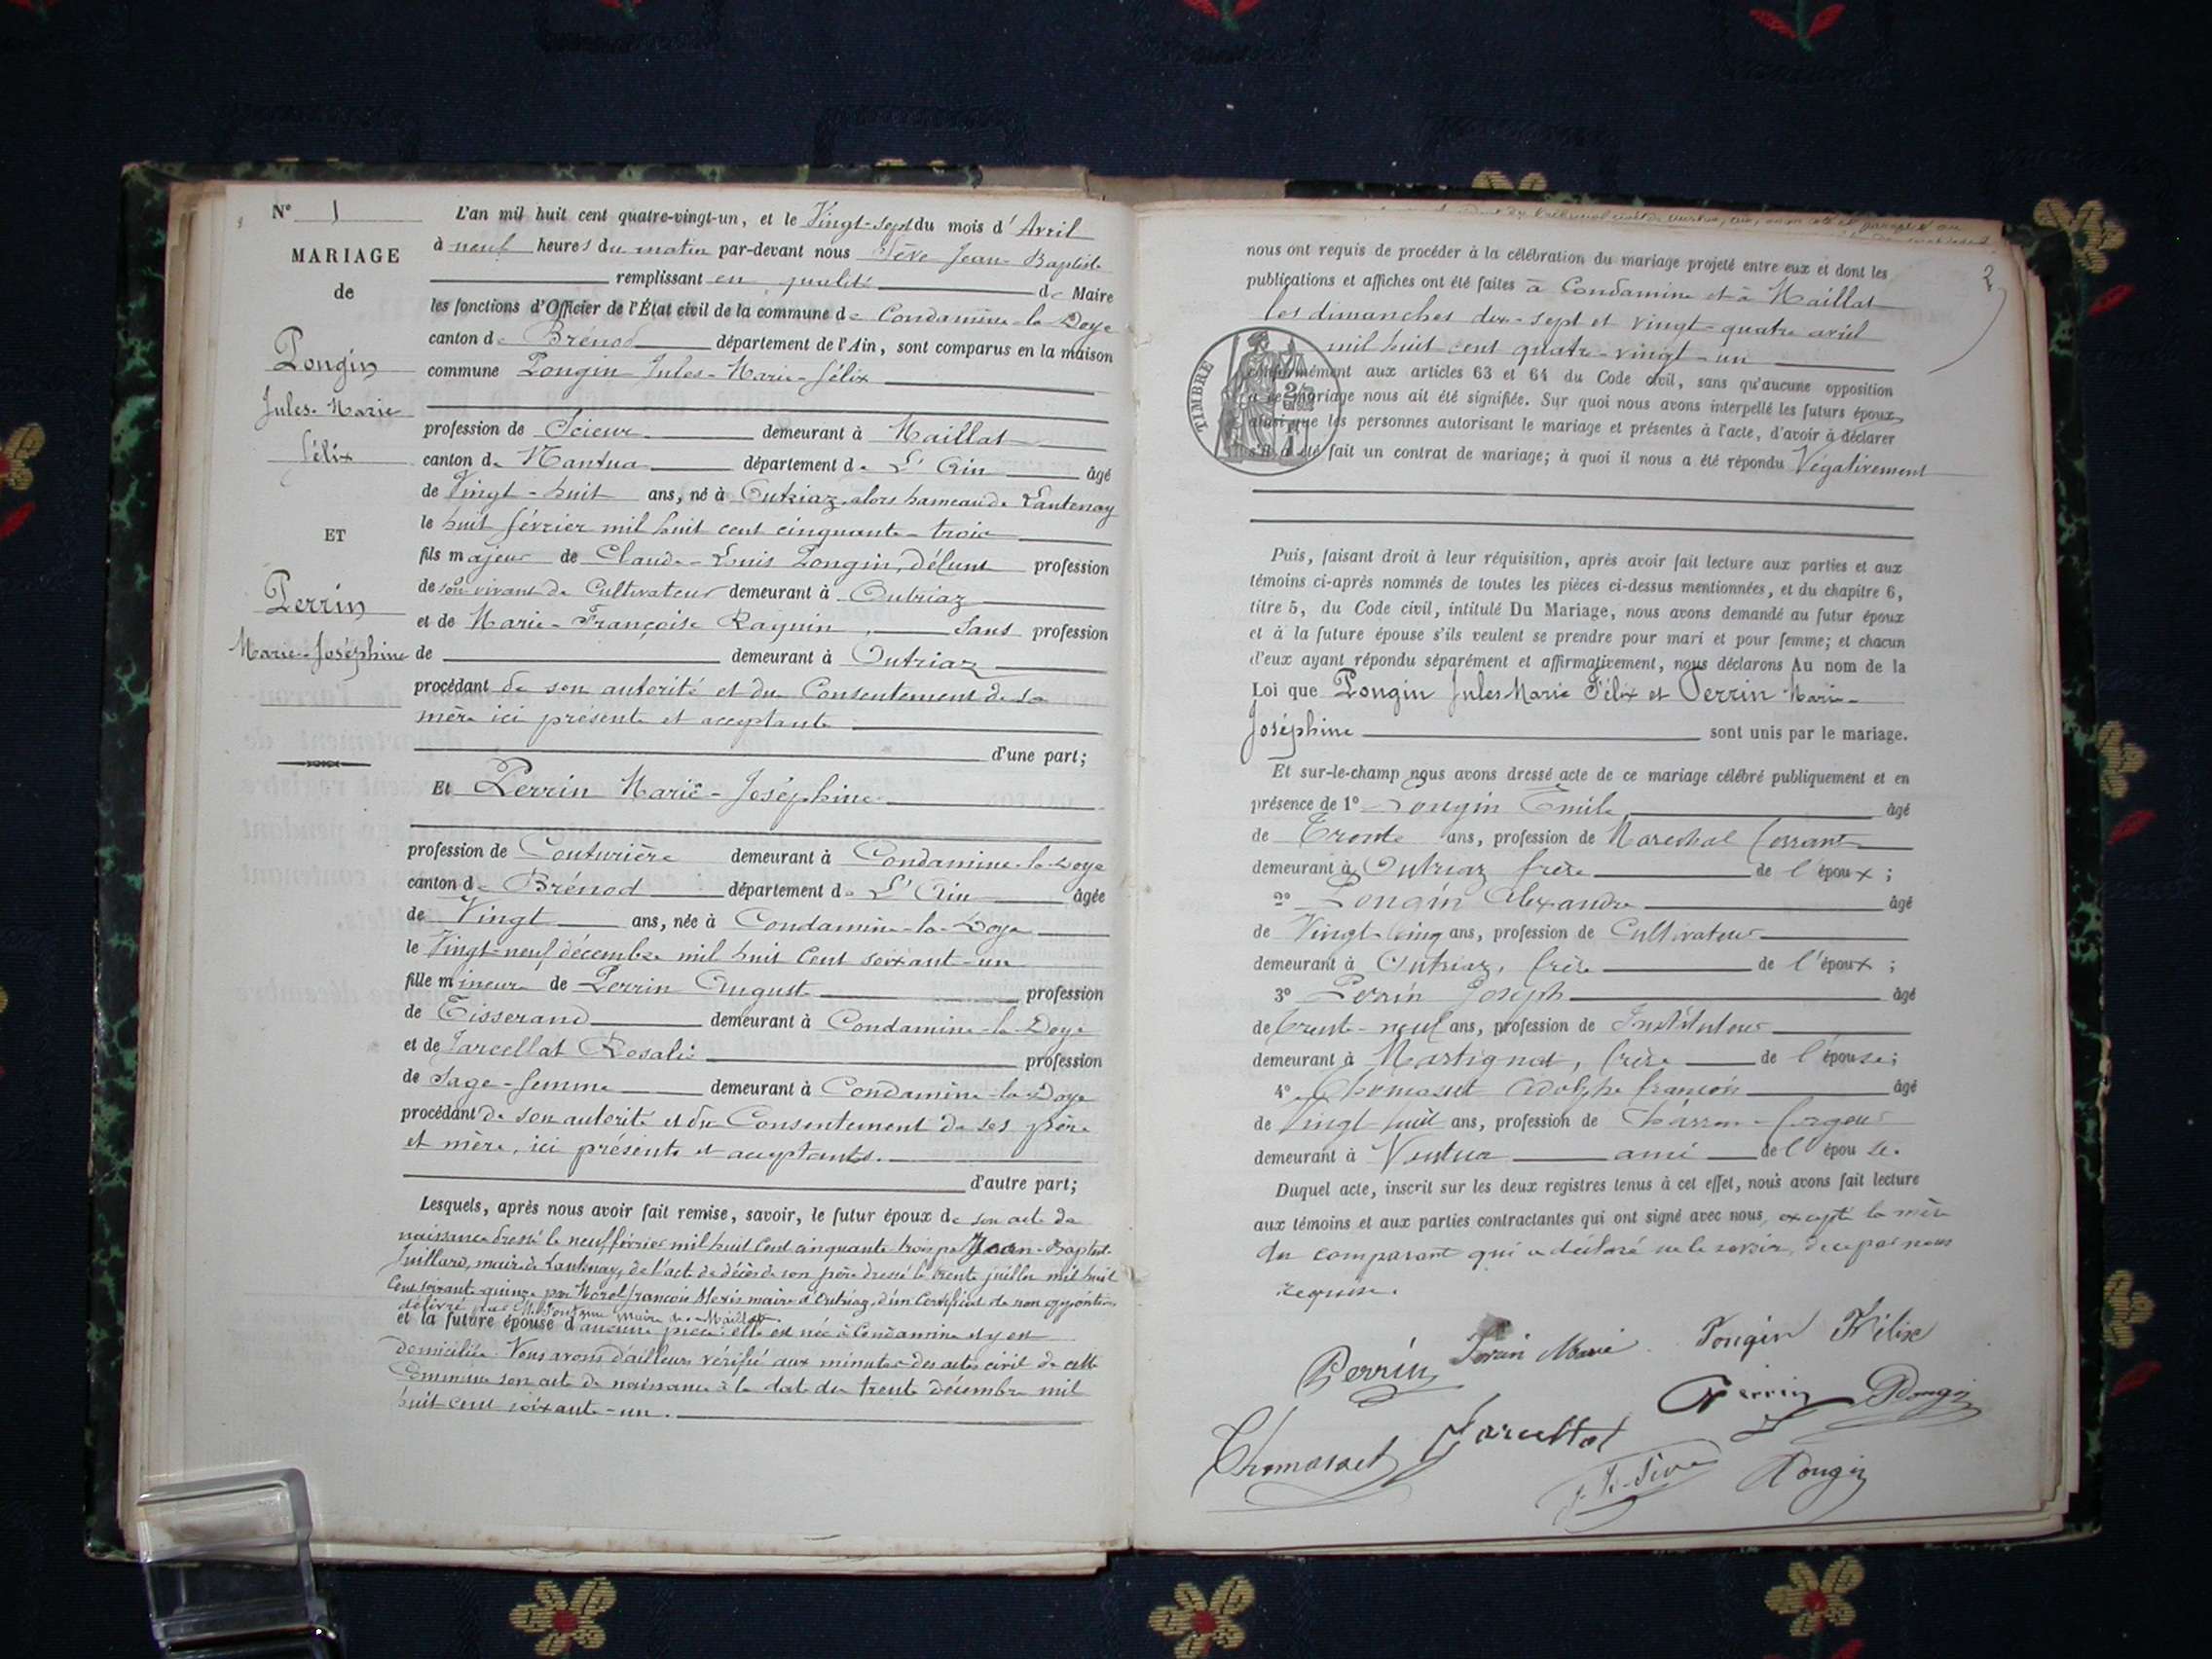 N° 1
MARIAGE
de
Pongin
Jules-Marie
félix
ET
Perrin
Marie-Joséphine
L'an mil huit cent quatre-vingt-un, et le Vingt-sept du mois d'Avril
à neuf heures du matin par-devant nous Sève Jean-Baptiste
remplissant en qualité de Maire
les fonctions d'Officier de l'État civil de la commune de Condamine-la-Doye
canton de Brénod département de l'Ain, sont comparus en la maison
commune Pongin Jules-Marie-félix
profession de Scieur demeurant à Maillat
canton de Nantua département de L'Ain âgé
de Vingt-huit ans, né à Outriaz, alors hameau de Lantenay
le huit février mil huit cent cinquante-trois
fils majeur de Claude-Louis Pongin, défunt profession
de son vivant de Cultivateur demeurant à Outriaz
et de Marie-Françoise Raguin, Sans profession
de demeurant à Outriaz
procédant de son autorité et du Consentement de sa
mère ici présente et acceptante
d'une part;
Et Perrin Marie-Joséphine
profession de Couturière demeurant à Condamine-la-Doye
canton de Brénod département de L'Ain âgée
de Vingt ans, née à Condamine-la-Doye
le Vingt-neuf décembre mil huit Cent soixant-un
fille mineure de Perrin August profession
de Tisserand demeurant à Condamine-la-Doye
et de Jarcellat Rosalie profession
de Sage-femme demeurant à Condamine-la-Doye
procédant de son autorité et du Consentement de ses père
et mère, ici présents et acceptants.
d'autre part;
Lesquels, après nous avoir fait remise, savoir, le futur époux de son acte de
naissance dressé le neuf février mil huit Cent cinquante trois par Jean-Baptiste
Juillard, maire de Lantenay, de l'acte de décès de son père dressé le trente juillet mil huit
Cent soixante-quinze par Morel françois Alexis maire d'Outriaz, d'un Certificat de non opposition
délivré par maire de Maillat
et la future épouse d'aucune pièce: elle est née à Condamine et y est
domiciliée. Nous avons d'ailleurs vérifié aux minutes des actes civil de cette
Commune son acte de naissance à la date du trente décembre mil
huit cent soixante-un.
2
nous ont requis de procéder à la célébration du mariage projeté entre eux et dont les
publications et affiches ont été faites à Condamine et à Maillat
les dimanches dix-sept et vingt-quatre avril
mil huit cent quatre-vingt-un
TIMBRE
conformément aux articles 63 et 64 du Code civil, sans qu'aucune opposition
à ce mariage nous ait été signifiée. Sur quoi nous avons interpellé les futurs époux,
ainsi que les personnes autorisant le mariage et présentes à l'acte, d'avoir à déclarer
s'il a été fait un contrat de mariage; à quoi il nous a été répondu Négativement
Puis, faisant droit à leur réquisition, après avoir fait lecture aux parties et aux
témoins ci-après nommés de toutes les pièces ci-dessus mentionnées, et du chapitre 6,
titre 5, du Code civil, intitulé Du Mariage, nous avons demandé au futur époux
et à la future épouse s'ils veulent se prendre pour mari et pour femme; et chacun
d'eux ayant répondu séparément et affirmativement, nous déclarons Au nom de la
Loi que Pongin Jules Marie Félix et Perrin Marie-
Joséphine sont unis par le mariage.
Et sur-le-champ nous avons dressé acte de ce mariage célébré publiquement et en
présence de 1° Pongin Emile âgé
de Trente ans, profession de Marechal ferrant
demeurant à Outriaz frère de l'époux;
2° Pongin Alexandre âgé
de Vingt-Cinq ans, profession de Cultivateur
demeurant à Outriaz, frère de l'époux;
3° Perrin Joseph âgé
de trente-neuf ans, profession de Instituteur
demeurant à Martignat, frère de l'épouse;
4° Thomasset Adolphe françois âgé
de Vingt huit ans, profession de Charron-forgeur
demeurant à Nantua ami de l'épouse.
Duquel acte, inscrit sur les deux registres tenus à cet effet, nous avons fait lecture
aux témoins et aux parties contractantes qui ont signé avec nous, excepté la mère
du comparant qui a déclaré ne le savoir, de ce par nous
requise.
Perrin Perrin Marie Pongin Félix
Perrin Pongin
Thomasset Jarcellat
Sève Pongin